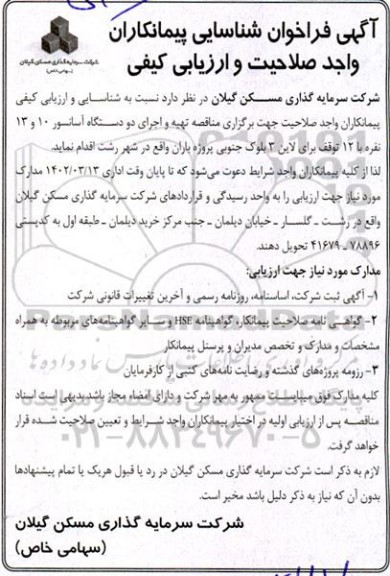 آگهی فراخوان شناسایی پیمانکاران
واجد صلاحیت و ارزیابی کیفی
شرکت سرمایه گذاری مسکن گیلان
(سهامی خاص)
شرکت سرمایه گذاری مسـکن گیلان در نظر دارد نسبت به شناسـایی و ارزیابی کیفی
پیمانکاران واجد صلاحیت جهت برگزاری مناقصه تهیه و اجرای دو دستـگاه آسانسور ۱۰ و ۱۳
نفره با ۱۲ توقف برای لاین ۳ بلوک جنوبی پروژه باران واقع در شهر رشت اقدام نماید.
لذا از کلیه پیمانکاران واجد شرایط دعوت می‌شود که تا پایان وقت اداری ۱۴۰۲/۰۳/۱۳ مدارک
مورد نیاز جهت ارزیابی را به واحد رسیدگی و قراردادهای شرکت سرمایه گذاری مسکن گیلان
واقع در رشـت ـ گلسـار ـ خیابان دیلمان ـ جنب مرکز خرید دیلمان ـ طبقه اول به کدپستی
۷۸۸۹۶ ـ ۴۱۶۷۹ تحویل دهند.
مدارک مورد نیاز جهت ارزیابی:
۱- آگهی ثبت شرکت، اساسنامه، روزنامه رسمی و آخرین تغییرات قانونی شرکت
۲- گواهـی نامه صلاحیت پیمانکار، گواهینامه HSE و سـایر گواهینامه‌های مربوطه به همراه
مشخصات و مدارک و تخصص مدیران و پرسنل پیمانکار
۳- رزومه پروژه‌های گذشته و رضایت نامه‌های کتبی از کارفرمایان
کلیه مدارک فوق میبایسـت ممهور به مهر شرکت و دارای امضاء مجاز باشد.بدیهی است اسناد
مناقصـه پس از ارزیابی اولیه در اختیار پیمانکاران واجد شـرایط و تعیین صلاحیت شـده قرار
خواهد گرفت.
لازم به ذکر است شرکت سرمایه گذاری مسکن گیلان در رد یا قبول هریک یا تمام پیشنهادها
بدون آن که نیاز به ذکر دلیل باشد مخیر است.
شرکت سرمایه گذاری مسکن گیلان
(سهامی خاص)
۰۲۱-۸۸۳۴۹۶۷۰-۵